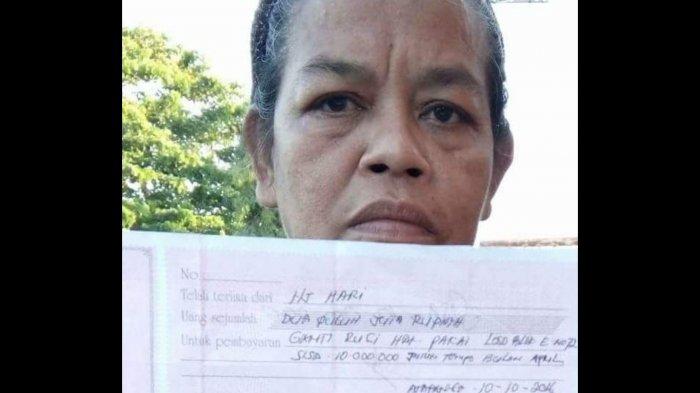 No
Telah terima dari HJ HARI
Uang sejumlah DUA PULUH JUTA RUPIAH
Untuk pembayaran GANTI RUGI HAK PAKAI LOSD BLOK E NO
SISA 10.000.000 JATUH TEMPO BULAN APRIL
10-10-2016